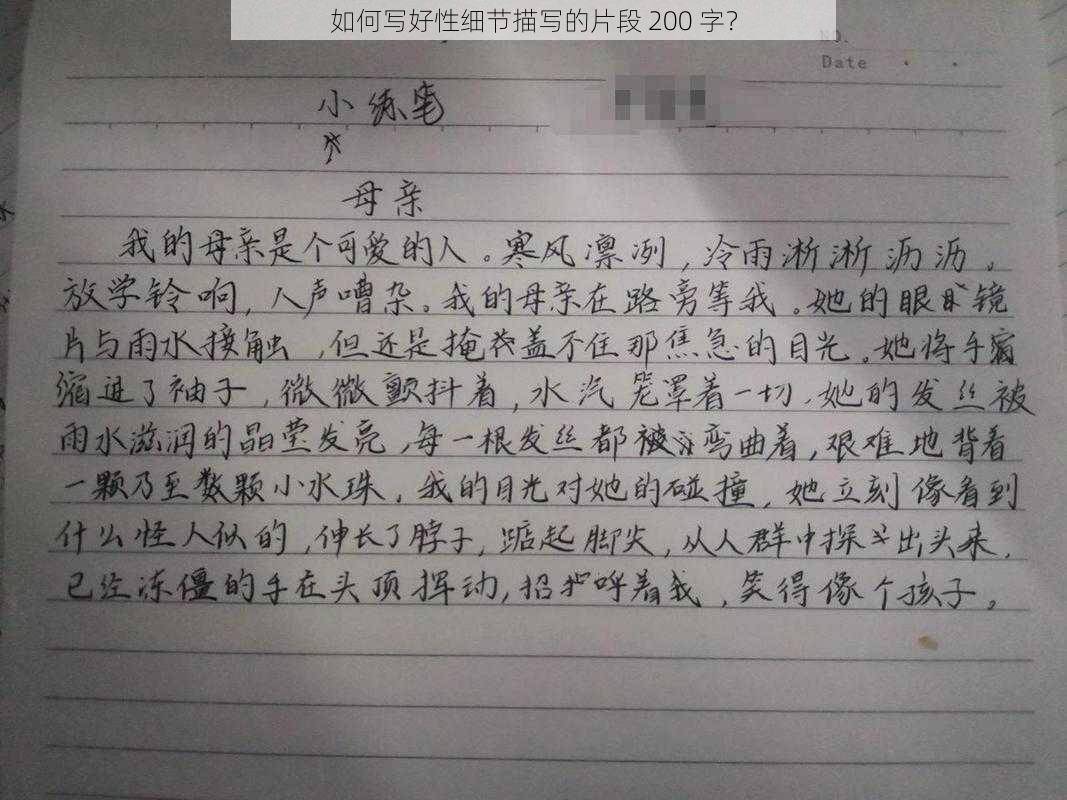 如何写好性细节描写的片段 200 字?
NO.
Date
小练笔
母亲
我的母亲是个可爱的人。寒风凛冽，冷雨淅淅沥沥。
放学铃响，人声嘈杂。我的母亲在路旁等我。她的眼镜
片与雨水接触，但还是掩盖不住那焦急的目光。她将手
缩进了袖子，微微颤抖着，水汽笼罩着一切，她的发丝被
雨水滋润的晶莹发亮，每一根发丝都被弯曲着，艰难地背着
一颗乃至数颗小水珠，我的目光对她的碰撞，她立刻像看到
什么怪人似的，伸长了脖子，踮起脚尖，从人群中探出头来，
已经冻僵的手在头顶挥动，招呼着我，笑得像个孩子。